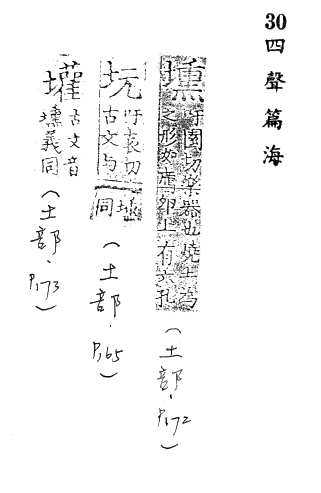 30 四聲篇海
壎
吁園切樂器也燒土為
之形如鴈卵上有六孔
(土部,P.172)
坃
吁袁切
古文与壎同
(土部,P.165)
古文音
壎義同
(土部,P.173)